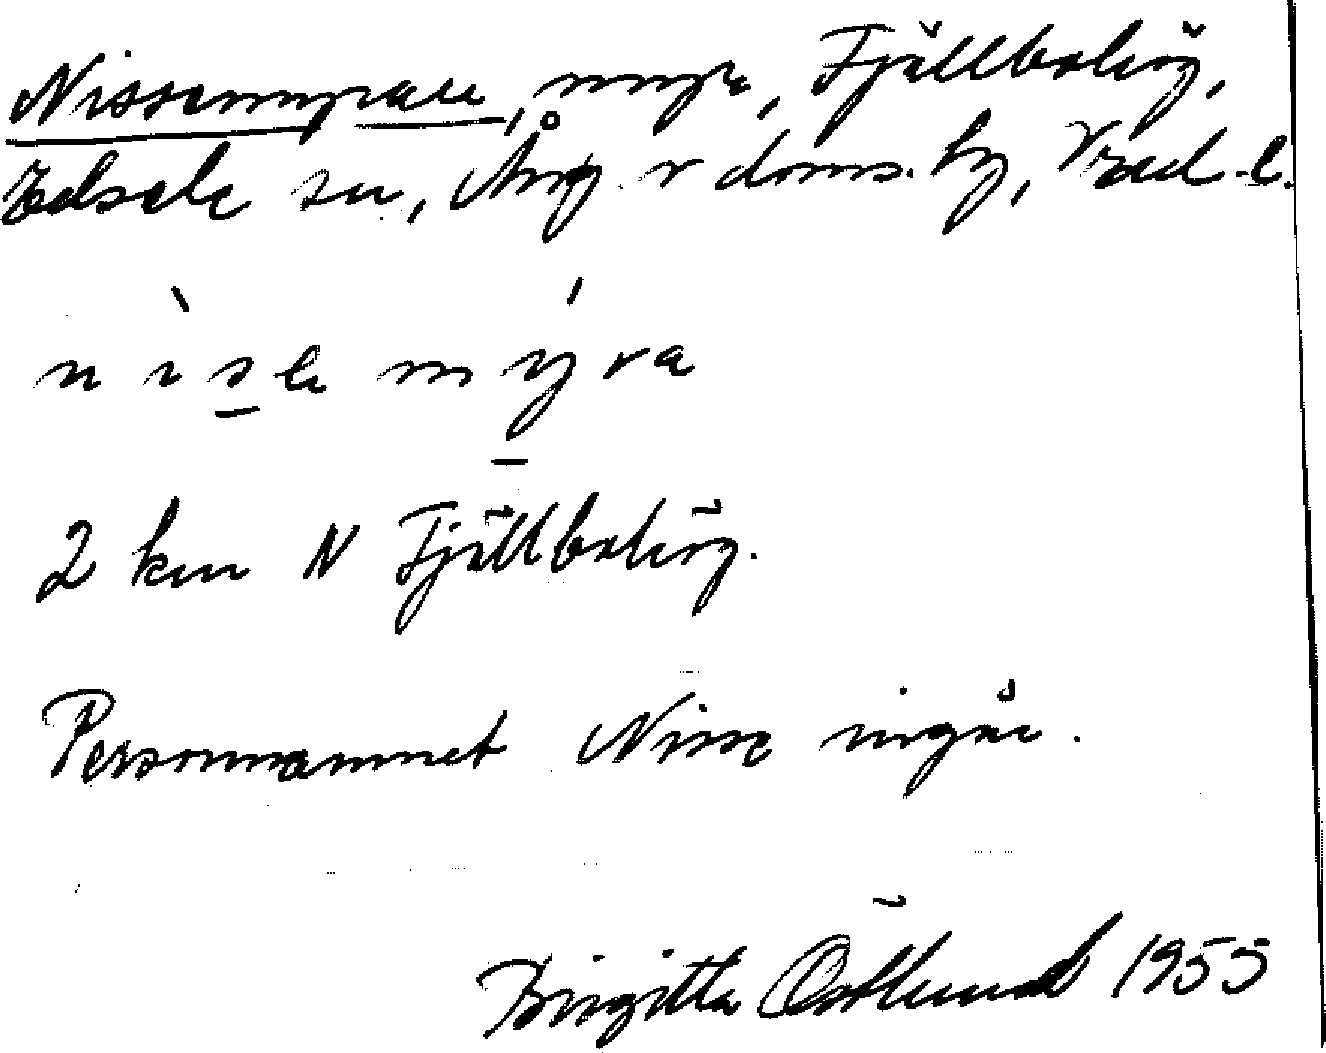 Nissemyran, myr, Fjällbolög,
Edsele sn, Ång v doms. hg, Vnd-l.
nise myra
2 km N Fjällbolög.
Personnamnet Nisse ingår.
Birgitta Östlund 1955